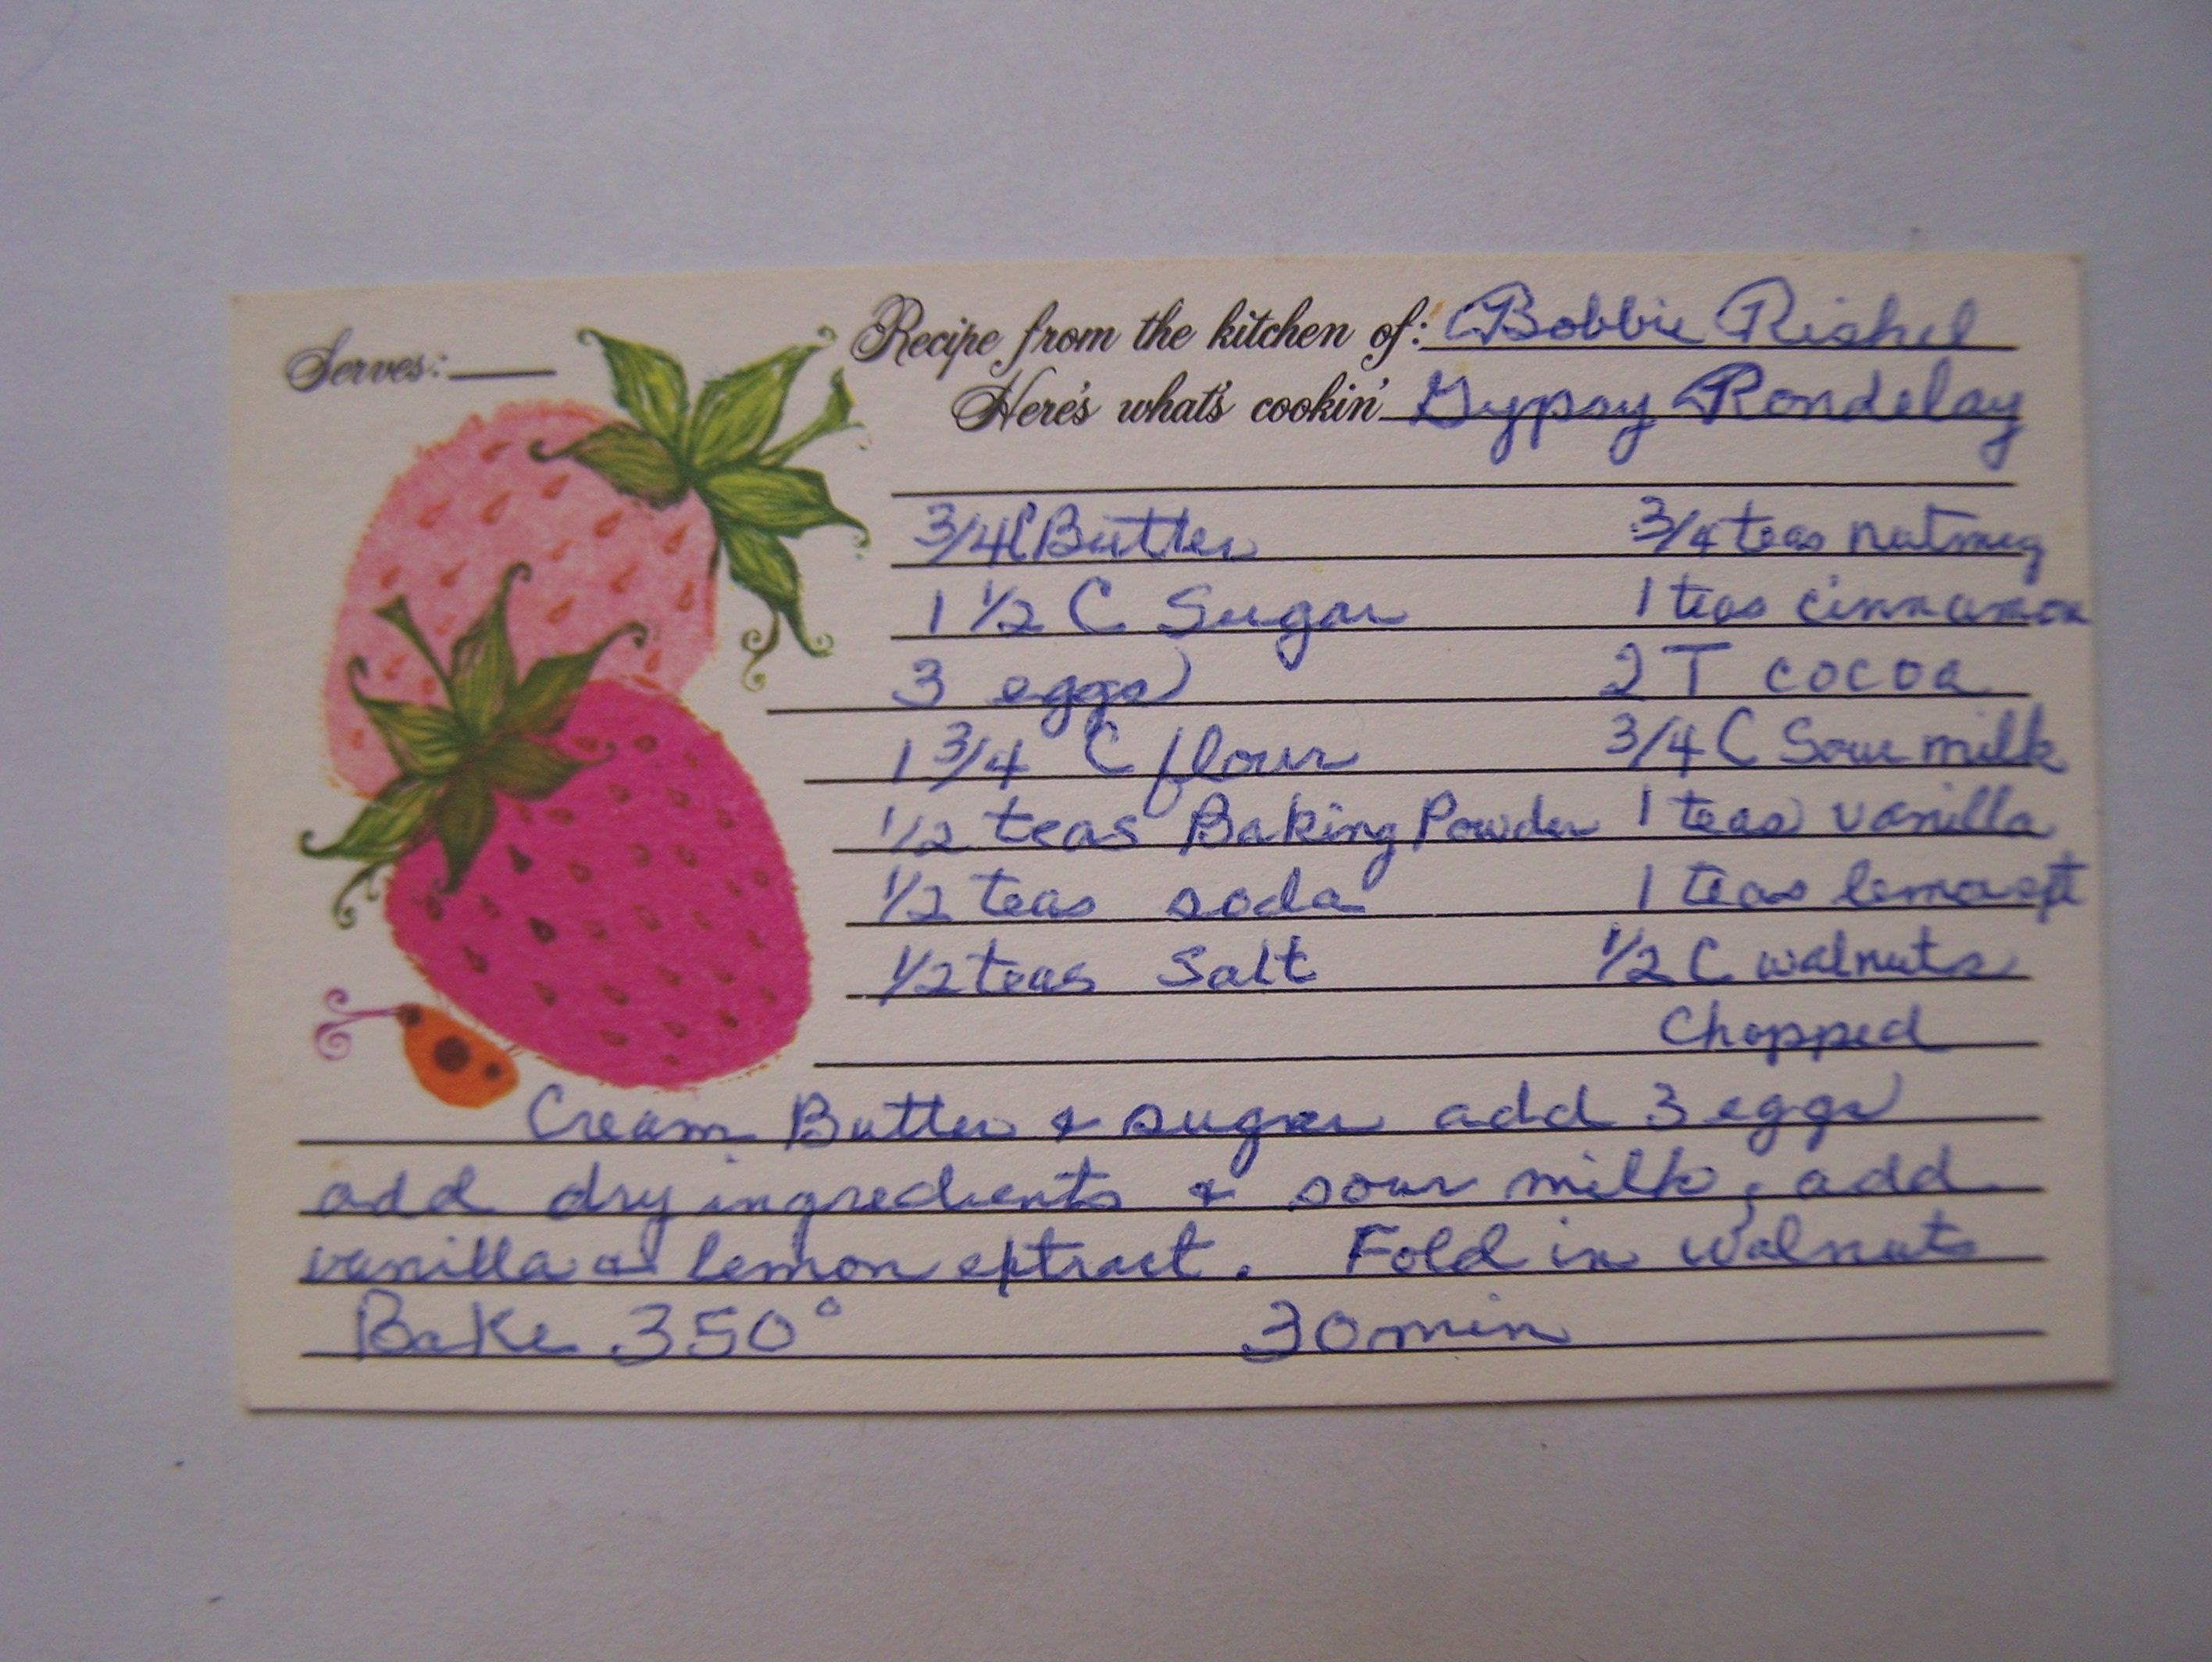 Serves:
Recipe from the kitchen of: Bobbie Rishel
Here's what's cookin' Gypsy Rondelay
3/4 C Butter
1 1/2 C Sugar
3 eggs
1 3/4 C flour
1/2 teas Baking Powder
1/2 teas soda
1/2 teas Salt
3/4 teas nutmeg
1 teas cinnamon
2 T cocoa
3/4 C Sour milk
1 teas vanilla
1 teas lemon ext
1/2 C walnuts
Chopped
Cream Butter & sugar add 3 eggs
add dry ingredients & sour milk, add
vanilla & lemon extract. Fold in walnuts
Bake 350° 30 min